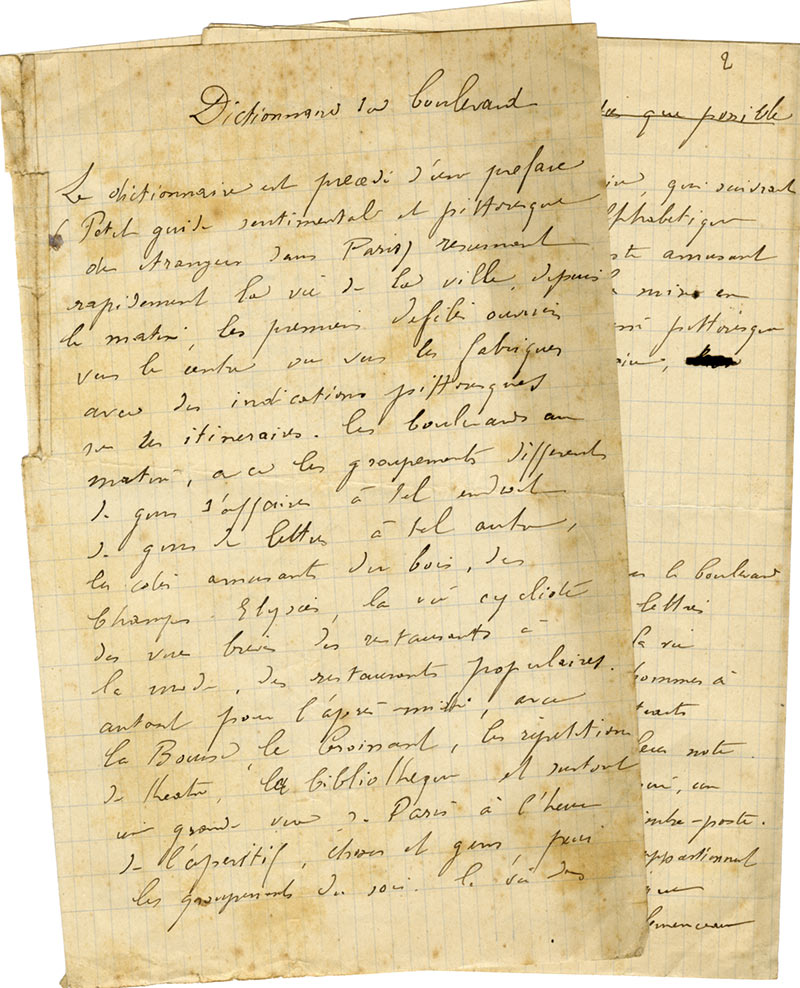 Dictionnaire du boulevard
Le dictionnaire est precedé d'une preface
( Petit guide sentimental et pittoresque
des etrangers dans Paris) resumant
rapidement la vie de la ville, depuis
le matin, les premiers defilés ouvriers
vers le centre ou vers les fabriques
avec des indications pittoresques
sur les itineraires. Les boulevards au
matin, avec les groupements differents
de gens d'affaires à tel endroit
de gens de lettres à tel autre,
les cotés amusants du bois, des
Champs-Elysées, la vie cycliste
des vues breves des restaurants à
la mode, des restaurants populaires.
autant pour l'après-midi, avec
la Bourse, le Croissant, les répétitions
de theatre, la bibliotheque et surtout
une grande vue de Paris à l'heure
de l'aperitif, choses et gens puis
les groupements du soir. la vie des
2
que possible
qui suivrait
alphabetique
amusant
mise en
pittoresque
le boulevard
lettres
la vie
hommes à
note
timbre-poste.
appartiennent
Clemenceau